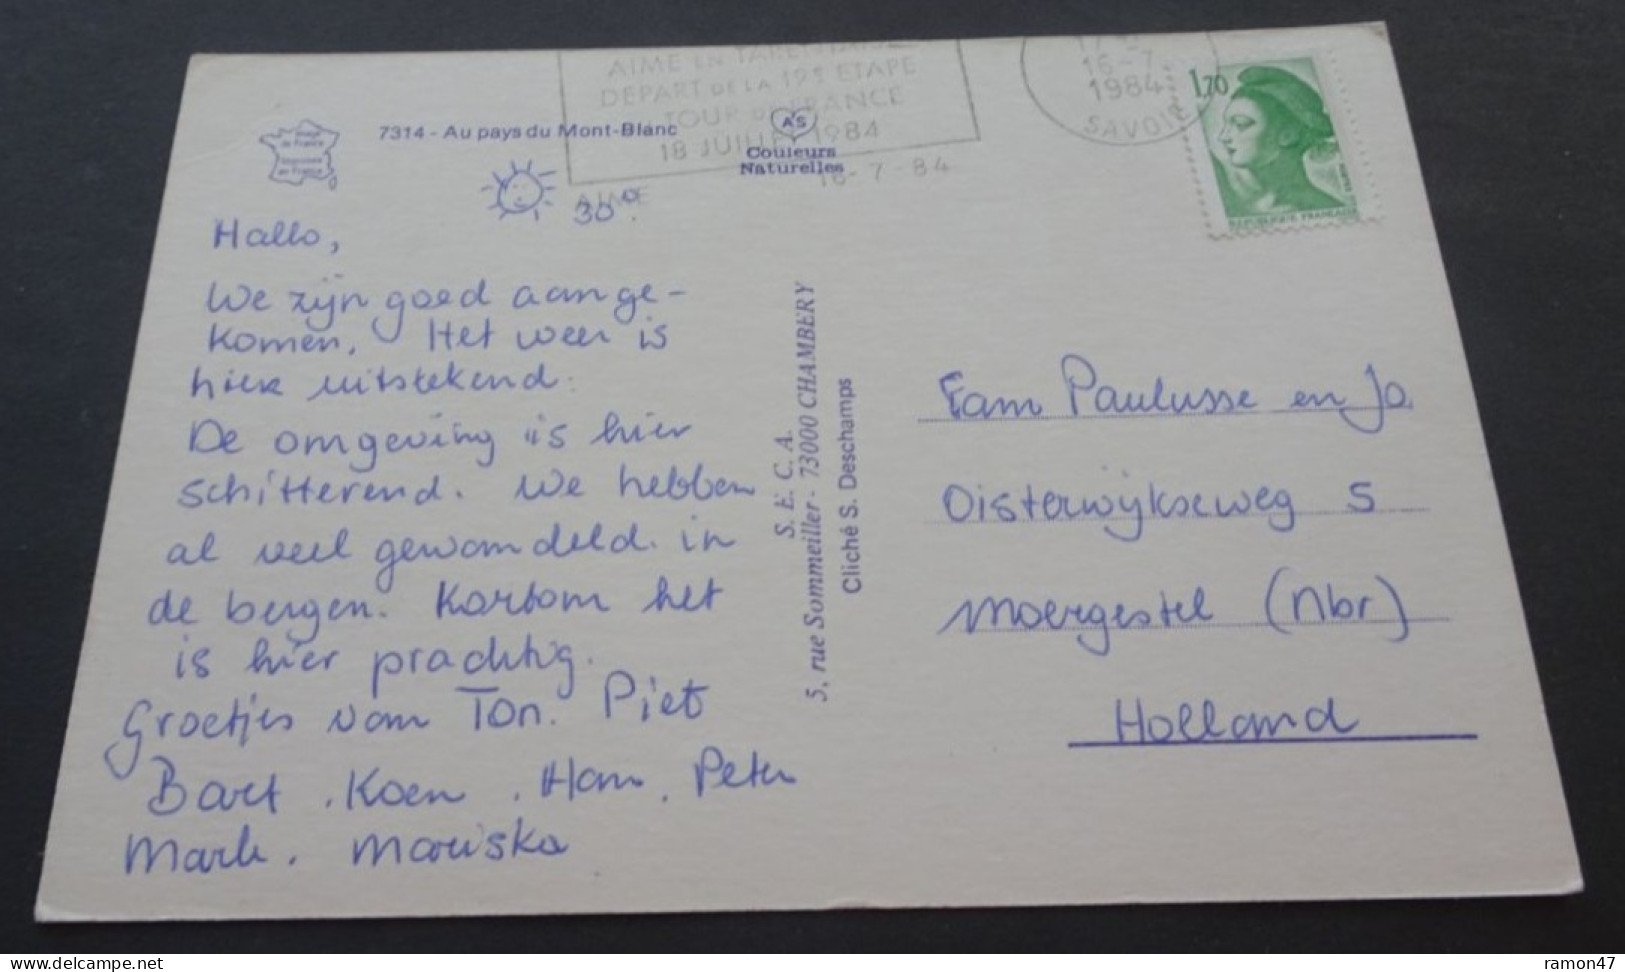 AIME EN TARENTAISE
DEPART DE LA 19E ETAPE
TOUR DE FRANCE
18 JUILLET 1984
16-7-84
AIME
16-7
1984
SAVOIE
1,70
REPUBLIQUE FRANÇAISE
Image
de France
Imprimée
en France
7314 - Au pays du Mont-Blanc
AS
Couleurs
Naturelles
30°
Hallo,
We zijn goed aange-
komen. Het weer is
hier uitstekend.
De omgeving is hier
schitterend. We hebben
al veel gewandeld in
de bergen. Kortom het
is hier prachtig.
Groetjes van Ton. Piet
Bart. Koen. Han. Peter
Mark. Mariska
S. E. C. A.
5, rue Sommeiller - 73000 CHAMBERY
Cliché S. Deschamps
Fam Paulusse en Jo.
Oisterwijkseweg 5
Moergestel (Nbr)
Holland
delcampe.net
ramon47